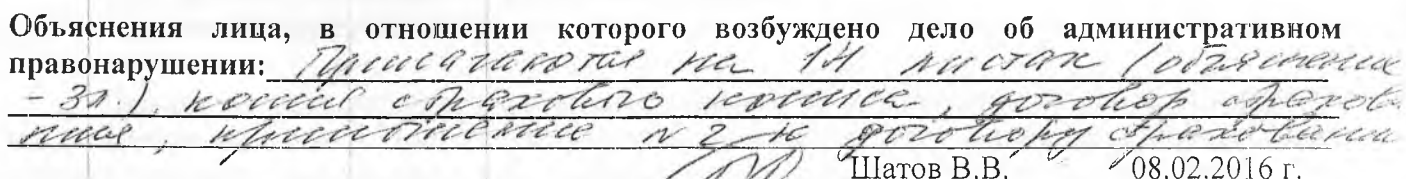 Объяснения лица, в отношении которого возбуждено дело об административном
правонарушении: Прилагаются на 14 листах (объяснение
- 3л.), копия страхового полиса, договор страхова
ния, приложение № 2 к договору страхования
Шатов В.В. 08.02.2016 г.